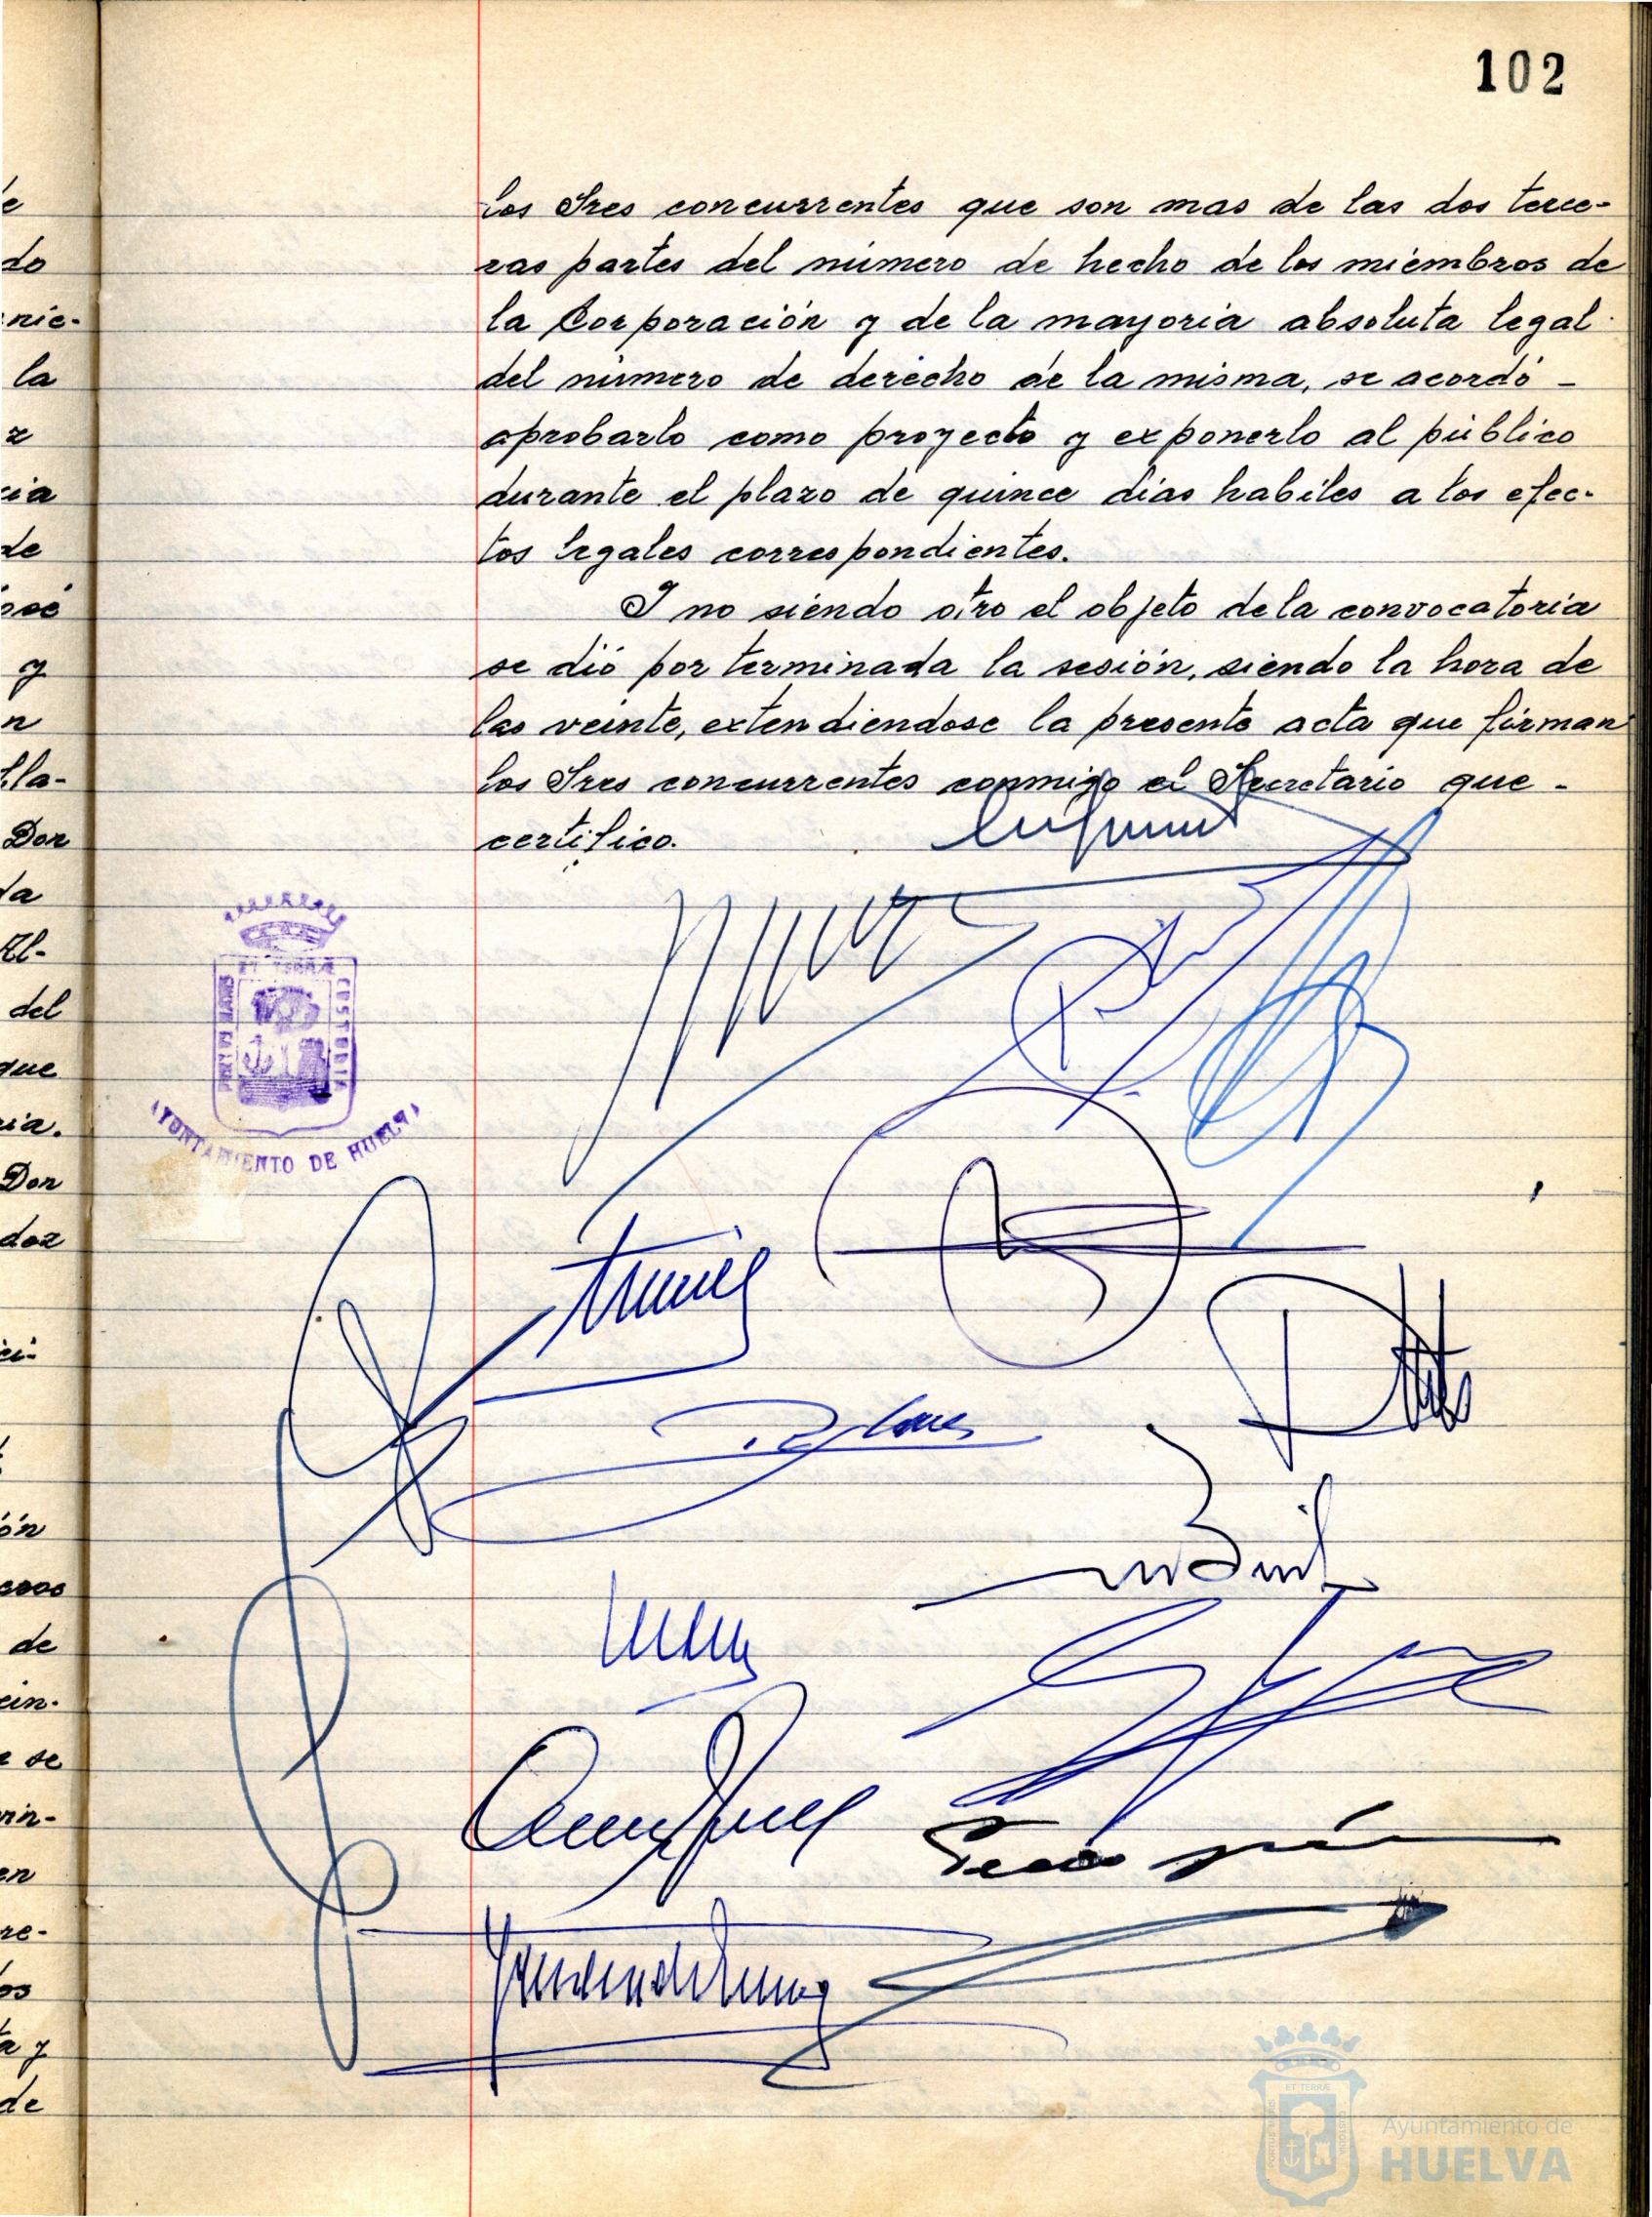 102
los Sres concurrentes que son mas de las dos terce-
ras partes del número de hecho de los miembros de
la Corporación y de la mayoria absoluta legal
del número de derecho de la misma, se acordó -
aprobarlo como proyecto y exponerlo al público
durante el plazo de quince dias habiles a los efec-
tos legales correspondientes.
Y no siendo otro el objeto de la convocatoria
se dió por terminada la sesión, siendo la hora de
las veinte, extendiendose la presente acta que firman
los Sres concurrentes conmigo el Secretario que -
certifico.
ET TERRÆ
PORTUS MARIS
CUSTODIA
AYUNTAMIENTO DE HUELVA
e
do
nie-
la
z
cia
de
osé
y
n
lla-
Don
da
Al-
del
que
ria.
Don
doz
ci-
ón
de
cin-
se
en
re-
os
ta y
de
Ayuntamiento de
HUELVA